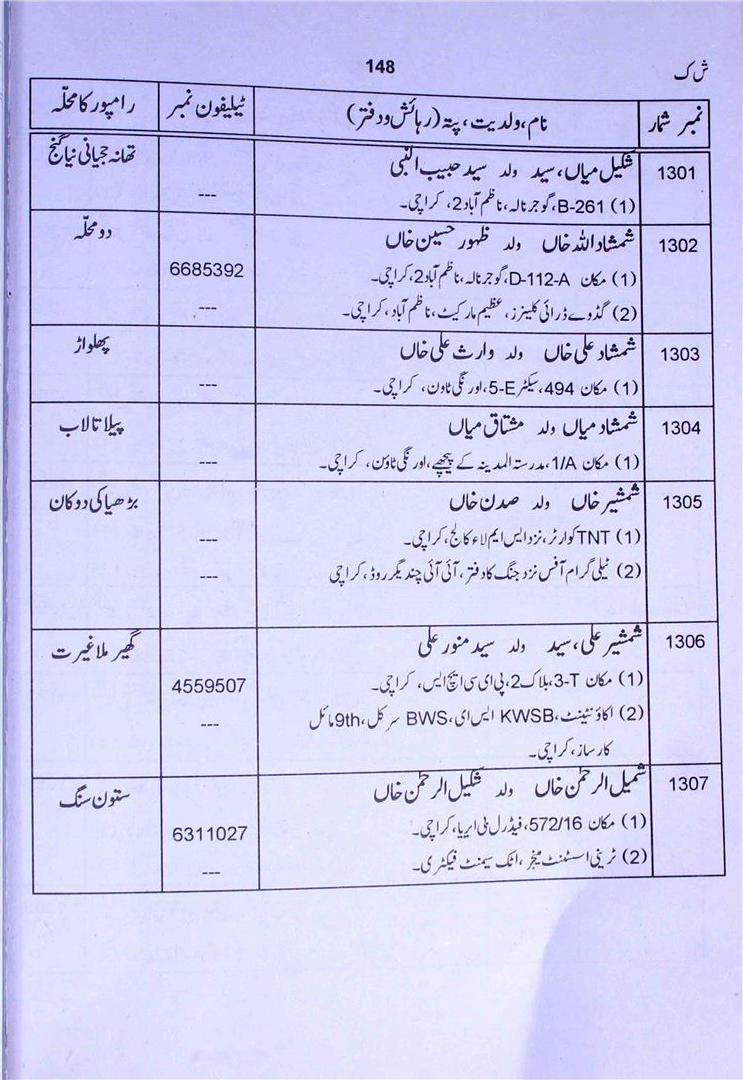 148
ش ک
نمبر شمار نام، ولدیت، پتہ (رہائش و دفتر) ٹیلیفون نمبر رامپور کا محلّہ
1301 شکیل میاں، سید ولد سید حبیب النبی تھانہ جیانی نیا گنج
(1) B-261، گوجر نالہ، ناظم آباد 2، کراچی۔ ---
1302 شمشاد اللہ خاں ولد ظہور حسین خاں دو محلّہ
(1) مکان D-112-A، گوجر نالہ، ناظم آباد 2، کراچی۔ 6685392
(2) گڈوے ڈرائی کلینرز، عظیم مارکیٹ، ناظم آباد، کراچی۔ ---
1303 شمشاد علی خاں ولد وارث علی خاں پھلواڑ
(1) مکان 494، سیکٹر 5-E، اورنگی ٹاون، کراچی۔ ---
1304 شمشاد میاں ولد مشتاق میاں پیلا تالاب
(1) مکان 1/A، مدرستہ المدینہ کے پیچھے، اورنگی ٹاؤن، کراچی۔ ---
1305 شمشیر خاں ولد صدن خاں بڑھیا کی دوکان
(1) TNT کوارٹر، نزد ایس ایم لاء کالج، کراچی۔ ---
(2) ٹیلی گرام آفس نزد جنگ کا دفتر، آئی آئی چندیگر روڈ، کراچی ---
1306 شمشیر علی، سید ولد سید منور علی گھیر ملا غیرت
(1) مکان 3-T، بلاک 2، پی ای سی ایچ ایس، کراچی۔ 4559507
(2) اکاؤنٹینٹ، KWSB ایس ای، BWS سرکل، 9th مائل ---
کارساز، کراچی۔
1307 شمیل الرحمٰن خاں ولد شکیل الرحمٰن خاں ستون سنگ
(1) مکان 572/16، فیڈرل بی ایریا، کراچی۔ 6311027
(2) ٹرینی اسسٹنٹ منیجر، اٹک سیمنٹ فیکٹری۔ ---